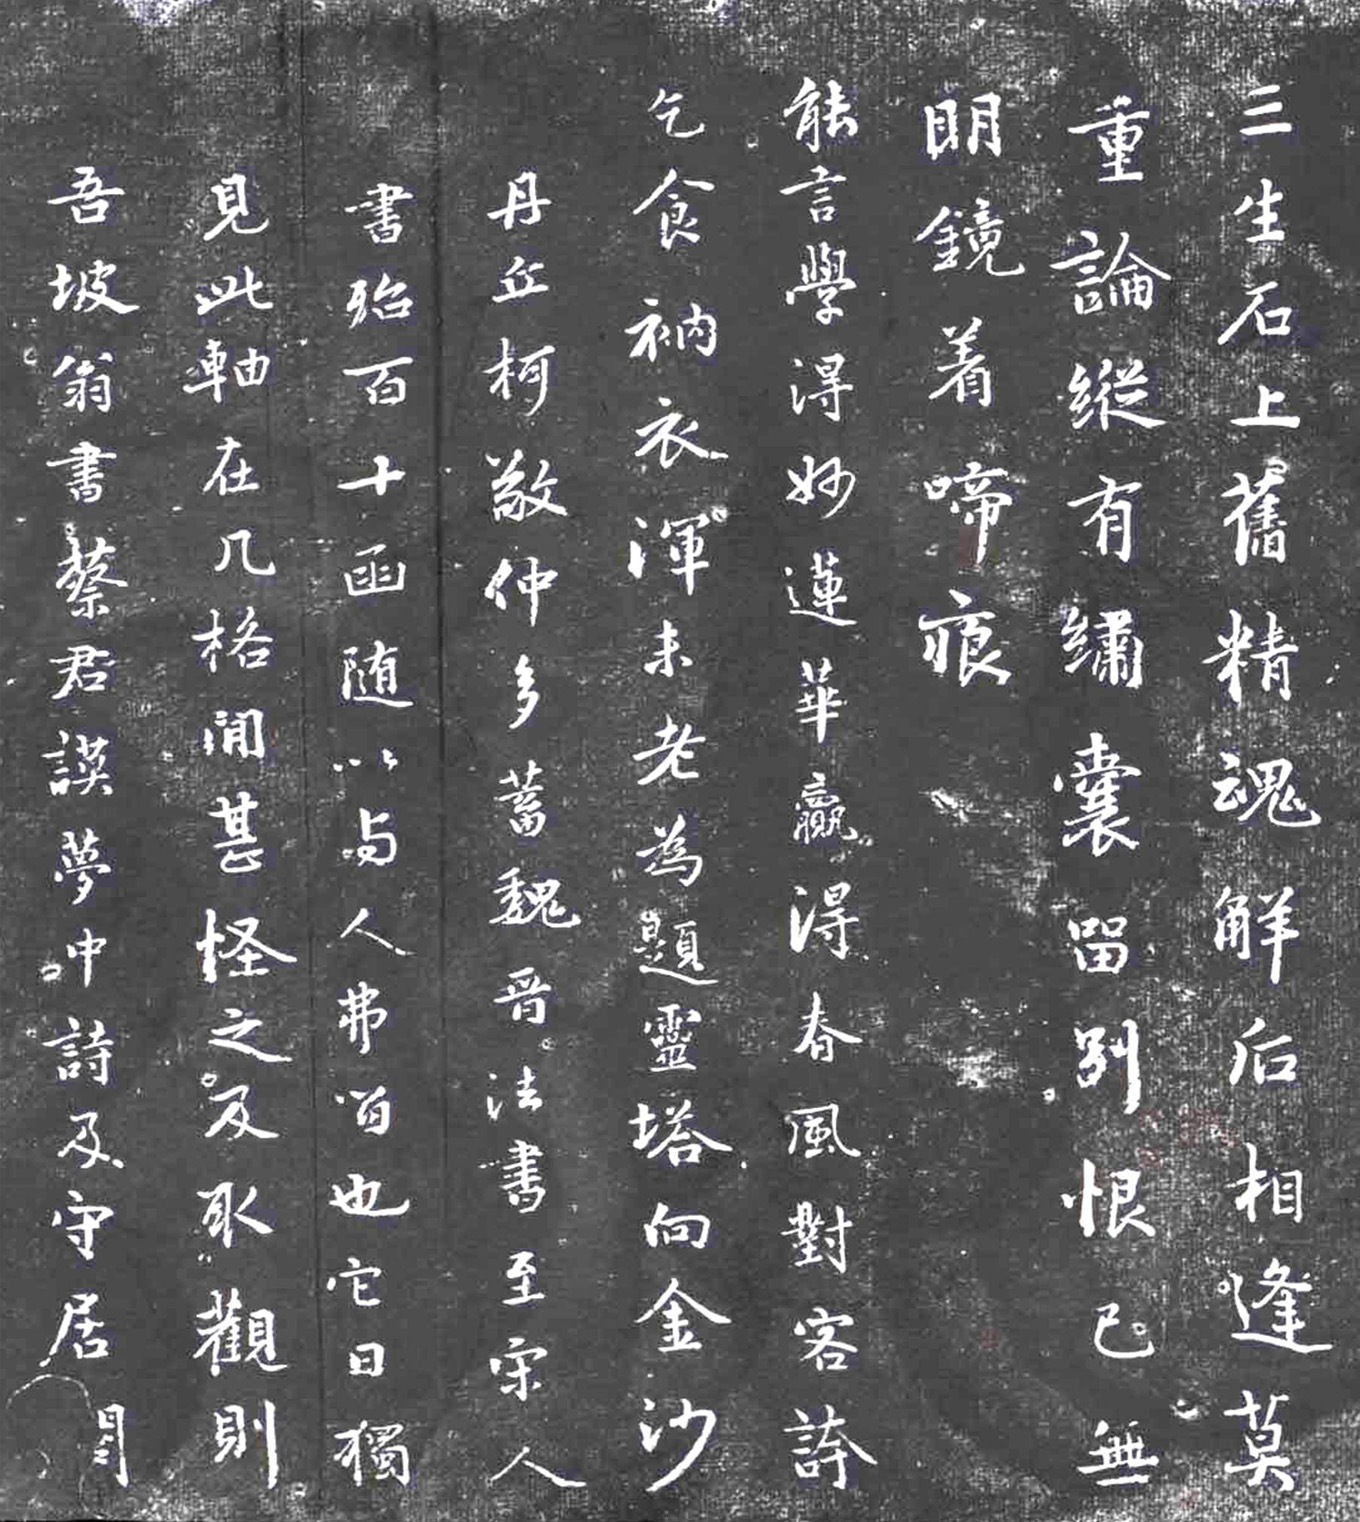 三生石上舊精魂解后相逢莫
重論縱有繡囊留別恨已無
明鏡着啼痕
能言學得妙蓮華贏得春風對客誇
乞食衲衣渾未老為題靈塔向金沙
丹丘柯敬仲多蓄魏晉法書至宋人
書殆百十函随以与人弗留也它日獨
見此軸在几格間甚怪之及取觀則
吾坡翁書蔡君謨夢中詩及守居閣